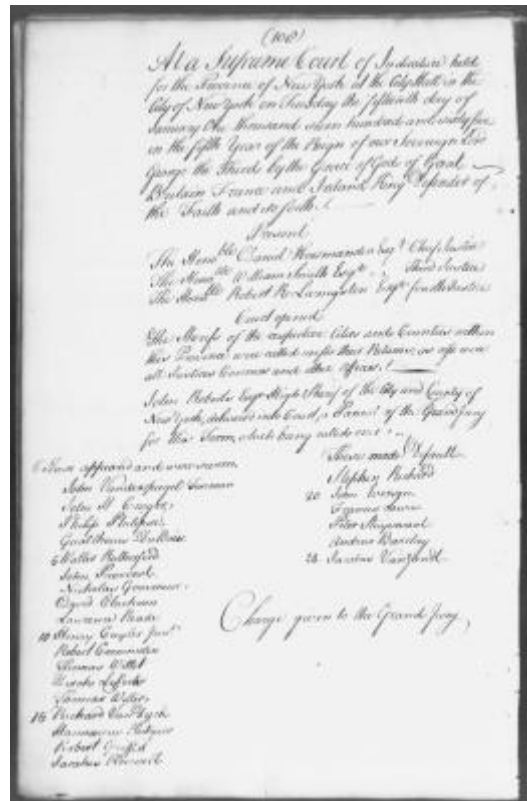 (106)
At a Supreme Court of Judicature held
for the Province of New York at the City Hall in the
City of New York on Tuesday the fifteenth day of
January One thousand seven hundred and sixty five
in the fifth Year of the Reign of our Sovereign Lord
George the Third by the Grace of God of Great
Britain France and Ireland King Defender of
the Faith and so forth.
Present
The Honble Daniel Horsmanden Esqr Chief Justice
The Honble William Smith Esqr Third Justice
The Honble Robert R Livingston Esqr fourth Justice
Court opened
The Sheriffs of the respective Cities and Counties within
this Province were called to their Returns as also were
all Justices Coroners and other officers
John Roberts Esqr High Sheriff of the City and County of
New York, delivered into Court, a Pannel of the Grand Jury
for this Term, which being called over
These appeared and were sworn
John Vanderspiegel Foreman
John
Philip
5 Walter Rutherfurd
John Provoost
Nicholas Gouverneur
David Clarkson
Lawrence Reade
10 Henry Cuyler Junr
Robert
Thomas
15 Richard
Robert Griffith
Jacobus Roosevelt
These made Default
Stephen Richard
20 John
Francis
Peter Stuyvesant
Andrew Barclay
24 Jacobus Van Zandt
Charge given to the Grand Jury,